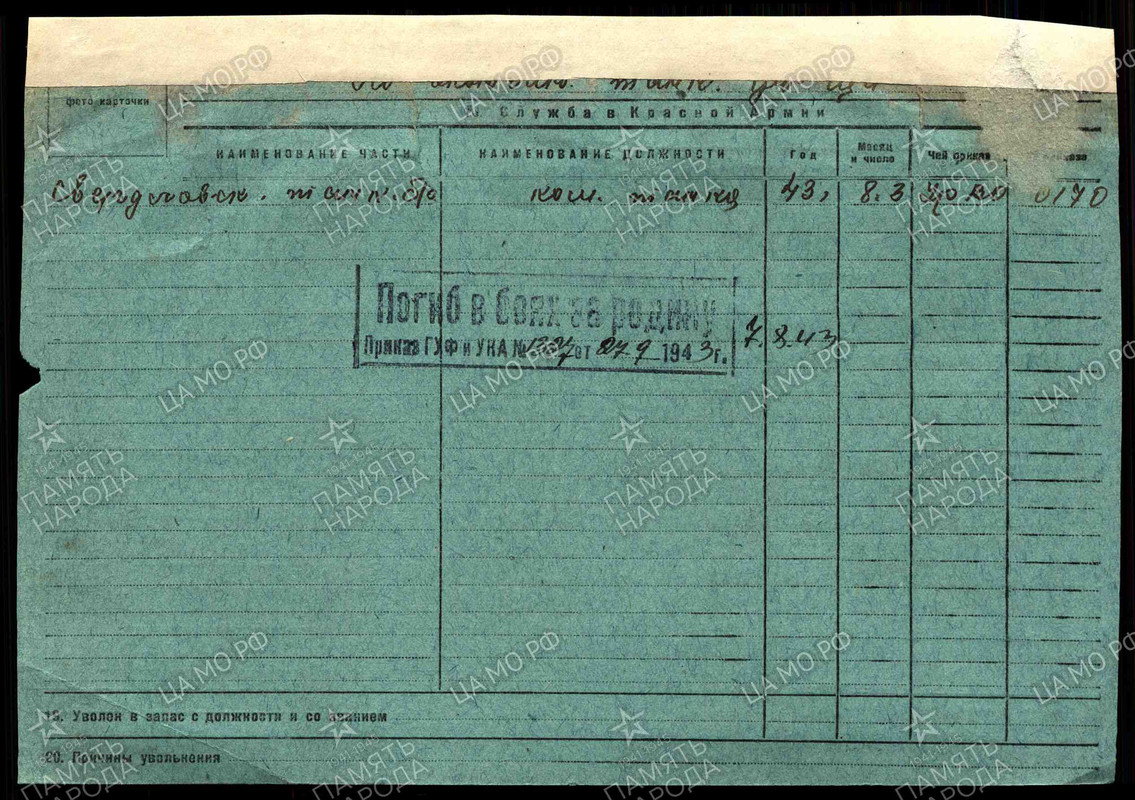 фото карточки
танк.
Служба в Красной Армии
НАИМЕНОВАНИЕ ЧАСТИ НАИМЕНОВАНИЕ ДОЛЖНОСТИ Год Месяц и число Чей приказ приказа
Свердловск. танк. ком. танка 43г 8.3 0170
Погиб в боях за родину
Приказ ГУФ и УКА № от 27.9 1943г. 7.8.43
19. Уволен в запас с должности и со званием
20. Причины увольнения
ЦА МО РФ
1941-1945
ПАМЯТЬ
НАРОДА